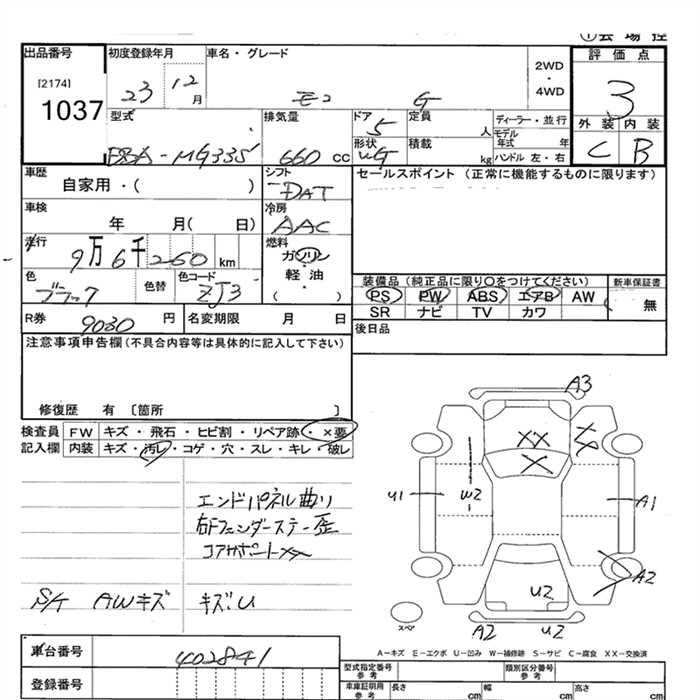 ①会場控
出品番号 初度登録年月 車名・グレード 2WD ・ 4WD 評価点
[2174] 1037 23 12月 G 3
外装 内装
C B
型式 排気量 ドア 定員 ディーラー・並行
DBA-MG33S 660 cc 5 人 モデル年式 年
形状 積載 kg ハンドル 左・右
車歴 シフト セールスポイント (正常に機能するものに限ります)
自家用・( ) DAT
車検 冷房
年 月( 日) AAC
走行 燃料
9万6千260 km ガソリン・軽油・( )
色 色替 色コード
ブラック ZJ3
装備品 (純正品に限り○をつけてください) 新車保証書
PS PW ABS エアB AW 無
SR ナビ TV カワ
R券 9030円 名変期限 月 日
後日品
注意事項申告欄(不具合内容等は具体的に記入して下さい)
修復歴 有 〔箇所 〕
検査員 FW キズ・飛石・ヒビ割・リペア跡・×要
記入欄 内装 キズ・汚レ・コゲ・穴・スレ・キレ・破レ
エンドパネル曲り
右Fフェンダーステー歪
コアサポートXX
S/T AWキズ キズ.U
A3
XX
X
U1
W2
A1
A2
U2
A2 U2
スペア
A－キズ E－エクボ U－凹み W－補修跡 S－サビ C－腐食 XX－交換済
車台番号 402841
登録番号
型式指定番号 参考 類別区分番号 参考
車庫証明用 参考 長さ cm 幅 cm 高さ cm